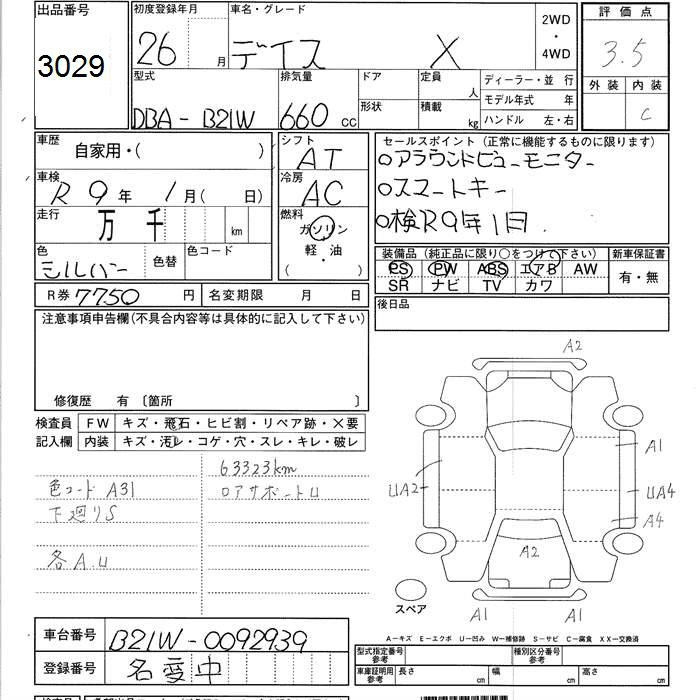 出品番号
3029
初度登録年月
26 月
車名・グレード
デイズ X
2WD
・
4WD
評価点
3.5
外装 内装
C
型式
DBA-B21W
排気量
660 CC
ドア
形状
定員
人
積載
kg
ディーラー・並行
モデル年式 年
ハンドル 左・右
車歴
自家用・( )
シフト
AT
車検
R9年 1月( 日)
冷房
AC
走行
万 千 km
燃料
ガソリン
軽・油
( ・ )
色
シルバー
色替
色コード
R券 7750 円
名変期限 月 日
セールスポイント(正常に機能するものに限ります)
○アラウンドビューモニター
○スマートキー
○検R9年1月
装備品(純正品に限り○をつけて下さい)
PS PW ABS エアB AW
SR ナビ TV カワ
新車保証書
有・無
後日品
注意事項申告欄(不具合内容等は具体的に記入して下さい)
修復歴 有〔箇所 〕
検査員
記入欄
FW キズ・飛石・ヒビ割・リペア跡・×要
内装 キズ・汚レ・コゲ・穴・スレ・キレ・破レ
63323km
色コード A31
ロアサポートU
下廻りS
各A.U
A2
A1
UA2
UA4
A4
A2
スペア
A1
A1
A-キズ E-エクボ U-凹み W-補修跡 S-サビ C-腐食 XX-交換済
車台番号 B21W-0092939
登録番号 名変中
型式指定番号
参考
種別区分番号
参考
車庫証明用
参考
長さ cm
幅 cm
高さ cm